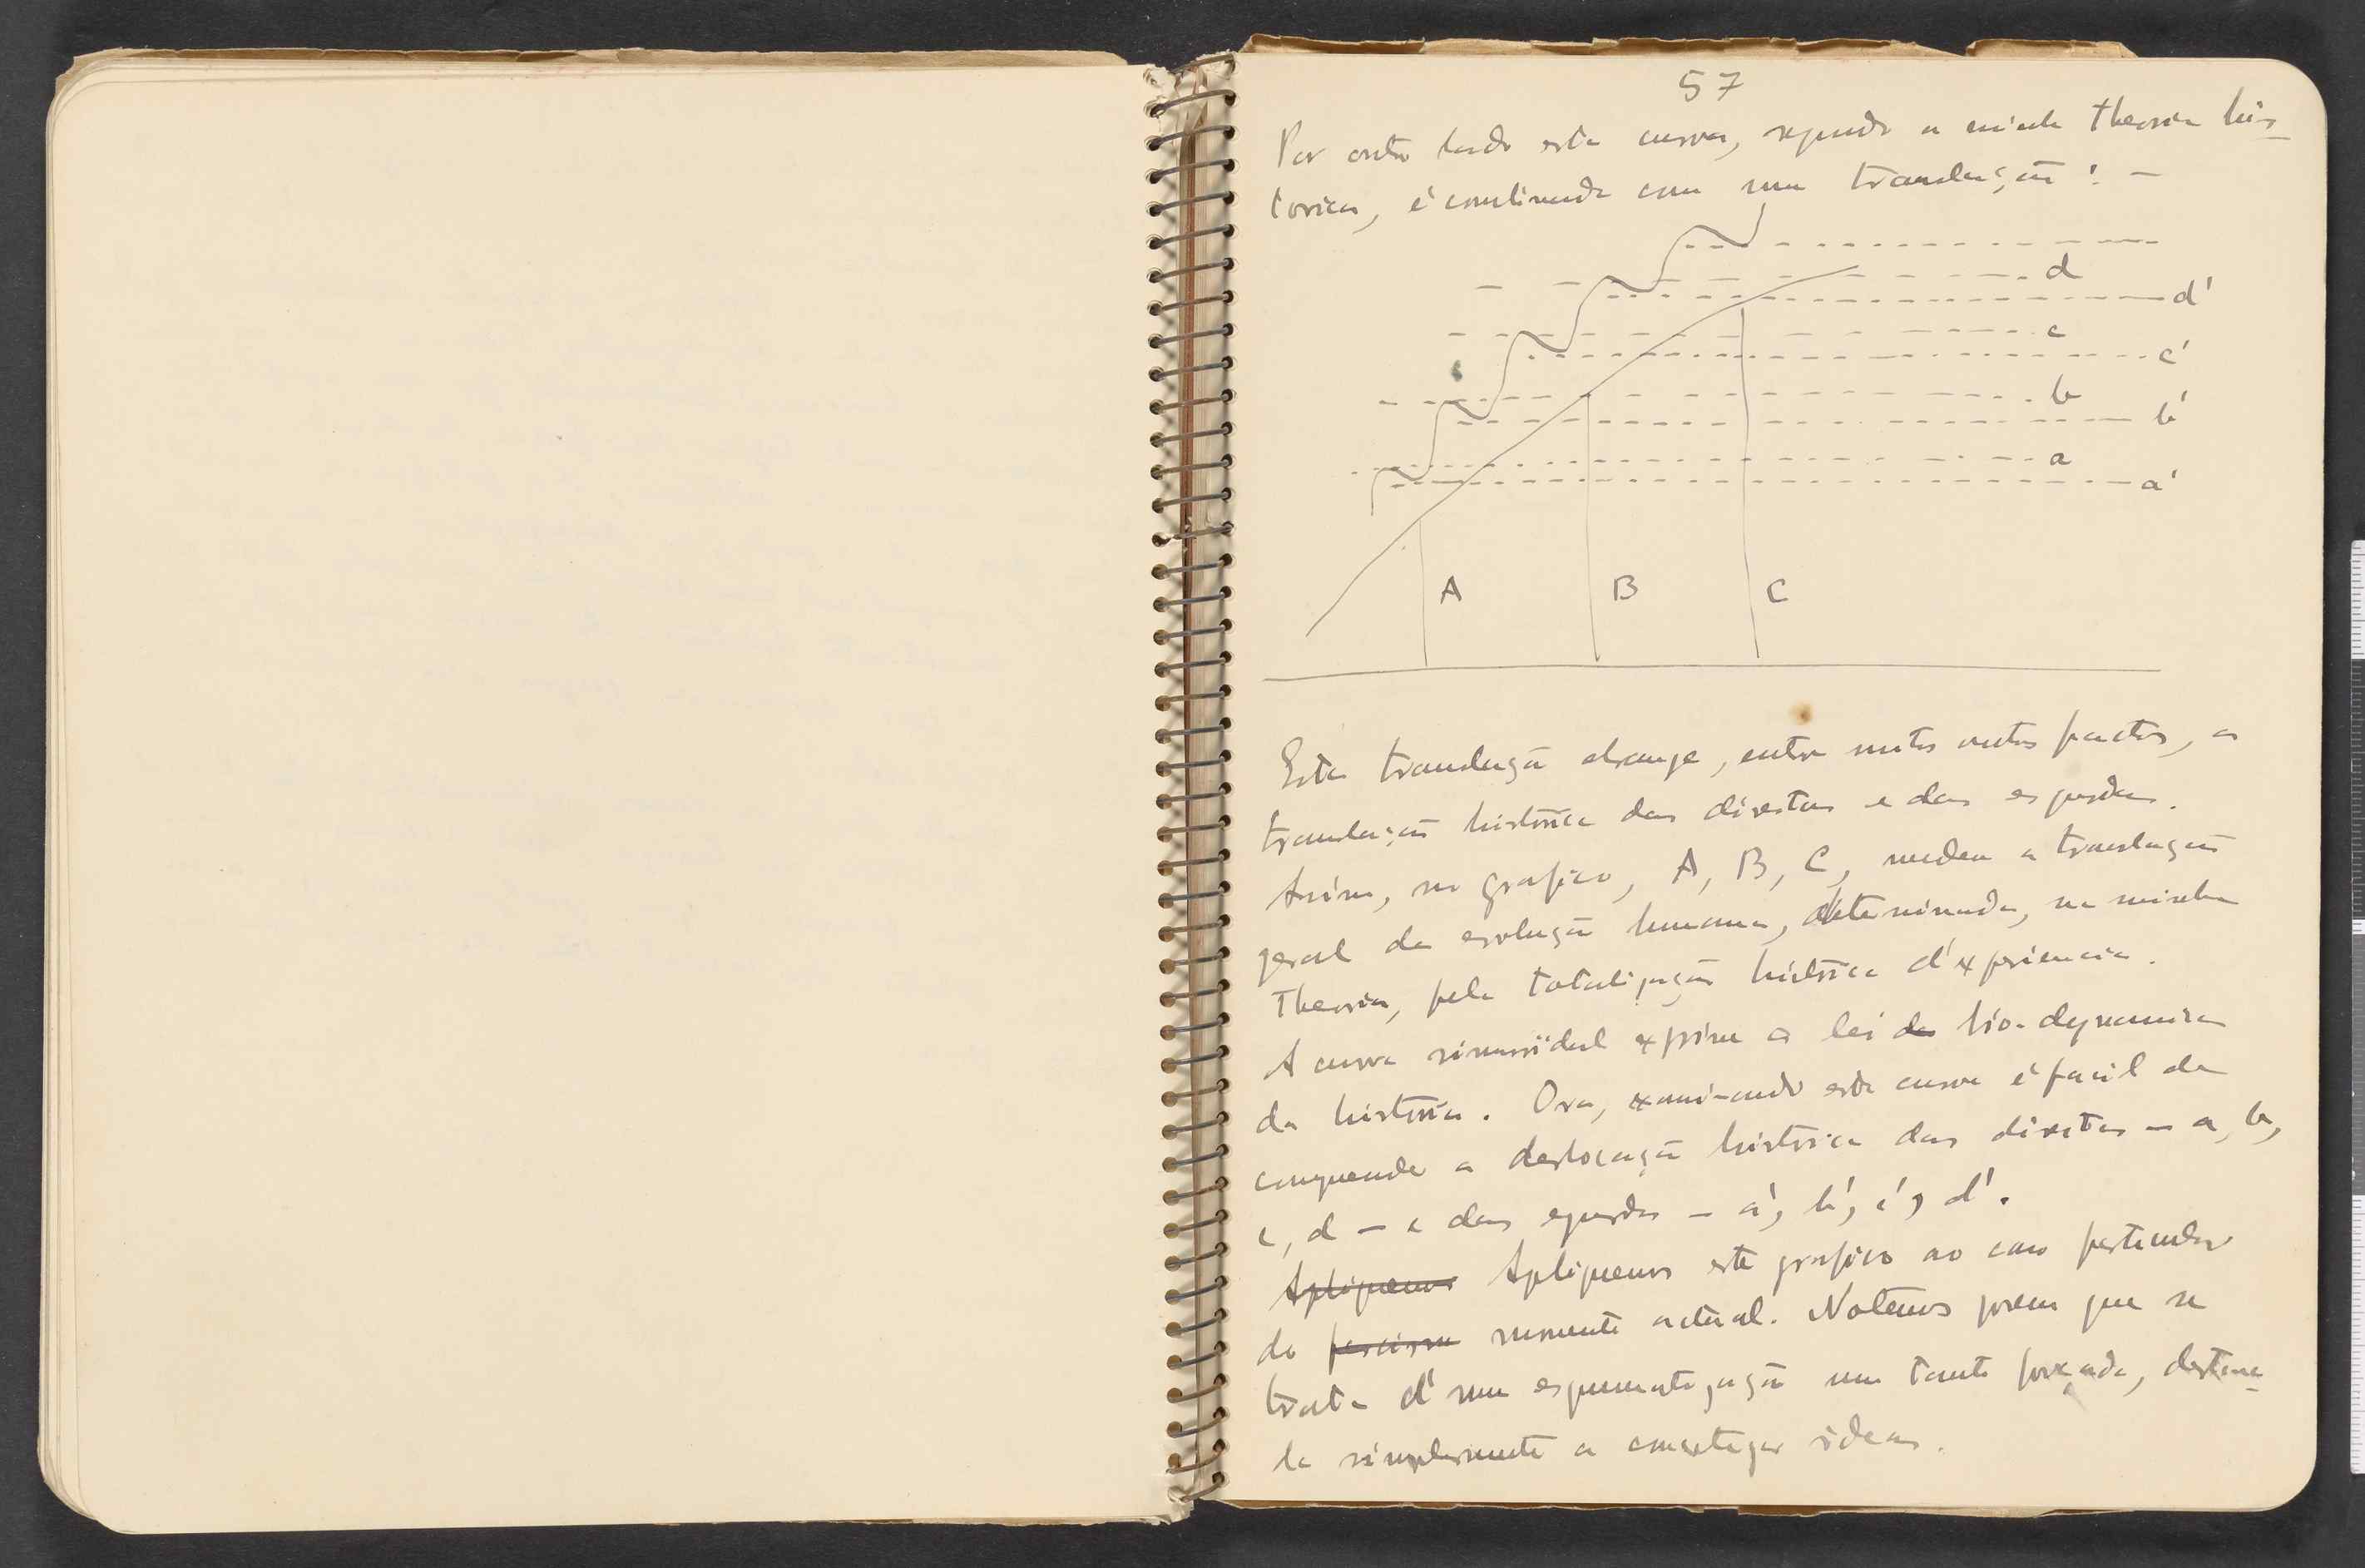 57
Por outro lado esta curva, segundo a minha theoria his-
torica, é combinada com uma translação: —
d
d'
c
c'
b
b'
a
a'
A B C
Esta translação abrange, entre muitos outros factos, a
translação historica das direitas e das esquerdas.
Assim, no grafico, A, B, C, medem a translação
geral da evolução humana, determinada, na minha
theoria, pela totalização historica d'experiencia.
A curva sinusoidal exprime a lei da bio-dynamica
da historia. Ora, examinando esta curva é facil de
comprehender a deslocação historica das direitas — a, b,
c, d — e das esquerdas — a', b', c', d'.
Apliquemos Apliquemos este grafico ao caso particular
do fascismo momento actual. Notemos porem que se
trata d'uma esquematização um tanto forçada, destina-
da simplesmente a concretizar ideas.